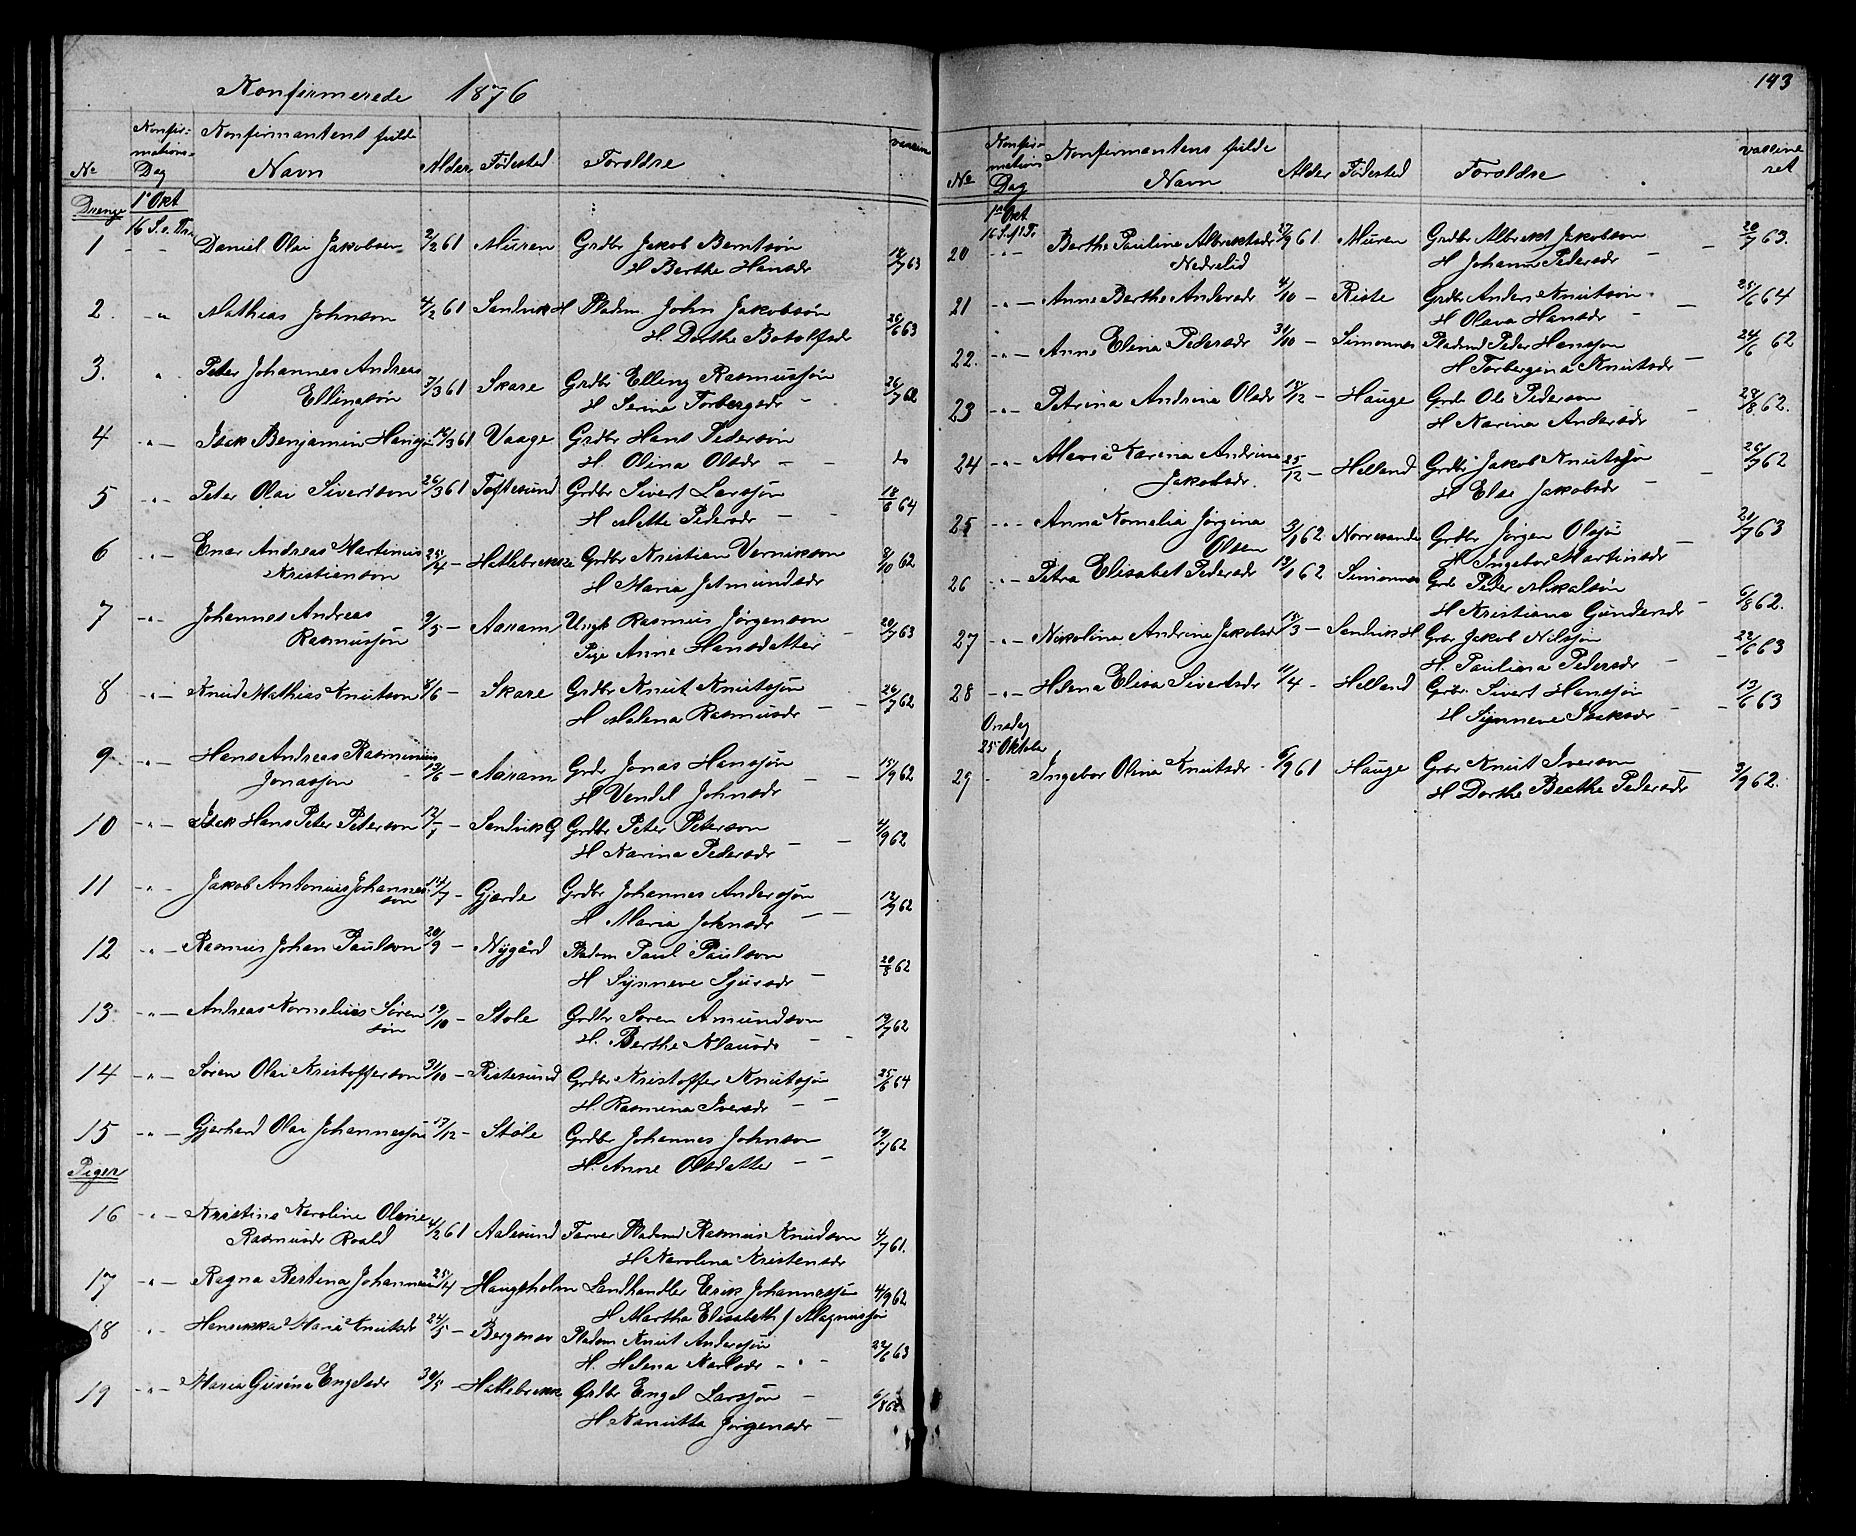 Konfirmerede 1876
No Konfir- mations- Dag Konfirmantens fulde Navn Alder Fødested Forældre vaccine
Drenge 1ste Okt
16 S. e. Tr.
1 Daniel Olai Jakobsen 2/2 61 Muren Grdbr Jakob Berntsøn
H Berthe Hansdr 18/7 63
2. -"- Mathias Johnsøn 4/2 61 Sandvik H Pladsm. John Jakobsøn
H. Dorthe Botolfsdr 26/6 63
3. " Peter Johannes Andreas
Ellingsøn 7/3 61 Skare Grdbr Elling Rasmussøn
H Serina Torbergsdr - 26/7 62
4 -"- Isak Benjamin Hansøn 16/3 61 Vaage Grdbr Hans Pedersøn
H. Olina Olsdr - - do
5 -"- Peter Olai Sivertson 26/3 61 Toftesund Grdbr Sivert Larssøn
H Mette Pedersdr - - 18/6 64
6 -"- Enar Andreas Martinus
Kristiansøn 25/4 - Hatlebrekke Grdbr Kristian Vernikson
H Maria Jetmundsdr 8/10 62
7 -"- Johannes Andreas
Rasmussøn 9/5 - Aaram Ungk Rasmus Jørgenson
Pige Anne Hansdatter - 20/7 63
8 -"- Knud Mathias Knutson 8/6 - Skare Grdbr Knut Knutsøn
H Malena Rasmusdr - - 26/7 62
9 -"- Hans Andreas Rasmunius
Jonassøn 13/6 - Aaram Grdbr Jonas Hanssøn
H Vendel Johnsdr - 15/9 62
10 -"- Isak Hans Peter Peterson 12/7 - Sandvik G Grdbr Peter Peterson
H Karina Pedersdr - - 4/9 62
11 -"- Jakob Antonius Johannes
son 14/7 - Gjærde Grdbr Johannes Anderssøn
H Maria Johnsdr - - 12/9 62
12 -"- Rasmus Johan Paulson 20/9 - Nygård Pladsm Paul Paulson
H Synneve Sjursdr - 20/8 62
13. -"- Andreas Kornelius Søren
søn 19/10 - Støle Grdbr Søren Amundson
H. Berthe Klausdr - - 19/7 62
14 -"- Søren Olai Kristofferson 31/10 - Ristesund Grdbr Kristoffer Knutsøn
H. Rasmina Iversdr - - 25/6 64
15 -"- Gjerhard Olai Johannessøn 17/12 - Støle Grdbr Johannes Johnson
H. Anne Olsdatter - - 19/7 62
Piger
16 -"- Kristine Karoline Oline
Rasmusdr Roald 4/2 61 Aalesund Farver Rasmus Knudson 4/7 61.
H Karolina Kristensdr
17 -"- Ragna Bertina Johannesen 25/4 Haugsholm Landhandler Erik Johannessøn 4/9 62
H Martha Elisabeth f Magnussøn
18 " Henrikka Marie Knutsdr 24/5 - Bergsnev Pladsm Knut Anderssøn
H. Helena Karlsdr - " - 22/6 63
19 -"- Maria Gurine Engelsdr 30/5 - Hatlebrekke Grdbr Engel Larssøn -
H Kanutta Jørgensdr - 6/8 62

193
No Konfir- mations Dag Konfirmantens fulde Navn Alder Fødested Forældre vaccine ret
1ste Okt
16 S. e. Tr.
20 -"- Berthe Pauline Albrektsdr
Nedrelid 27/9 61. Muren Grdbr Albrekt Jakobson
H Johanne Pedersdr - 20/7 63.
21 -"- Anne Berthe Andersdr 4/10 - Riste Grdbr Anders Knutsøn
H Olava Hansdr - 25/6 64
22. -"- Anne Elina Pedersdr 31/10 - Simonnes Pladsmd Peder Hanssøn
H Torbergina Knutsdr - 24/6 62
23 -"- Petrina Andrina Olsdr 18/12 - Hauge Grdb Ole Pederson
H Karina Andersdr - 28/8 62.
24 -"- Maria Karina Andrine
Jakobsdr. 25/12 - Helland Grdbr Jakob Knutsøn
H Else Jakobsdr - 26/7 62
25 -"- Anna Kornelia Jørgina
Olsen 3/1 62 Norresande Grdbr Jørgen Olssøn
H Ingebor Martinsdr - 20/7 63
26 -"- Petra Elisabet Pedersdr 19/1 62 Simonnes Grdb Peder Mikalsøn
H Kristiane Gundersdr - 6/8 62.
27 -"- Nikolina Andrine Jakobsdr 18/3 - Sandvik H Grdbr Jakob Nilssøn
H. Pauliana Pedersdr - 22/6 63
28 -"- Helena Elisa Sivertsdr 11/4 - Helland Grdbr. Sivert Hanssøn
H Synneve Isaksdr - - 13/6 63
Onsdag
25 Oktober
29 - Ingebor Olina Knutsdr 6/9 61 Hauge Grdbr Knut Iverson
H Dorthe Berthe Pedersdr 3/9 62.